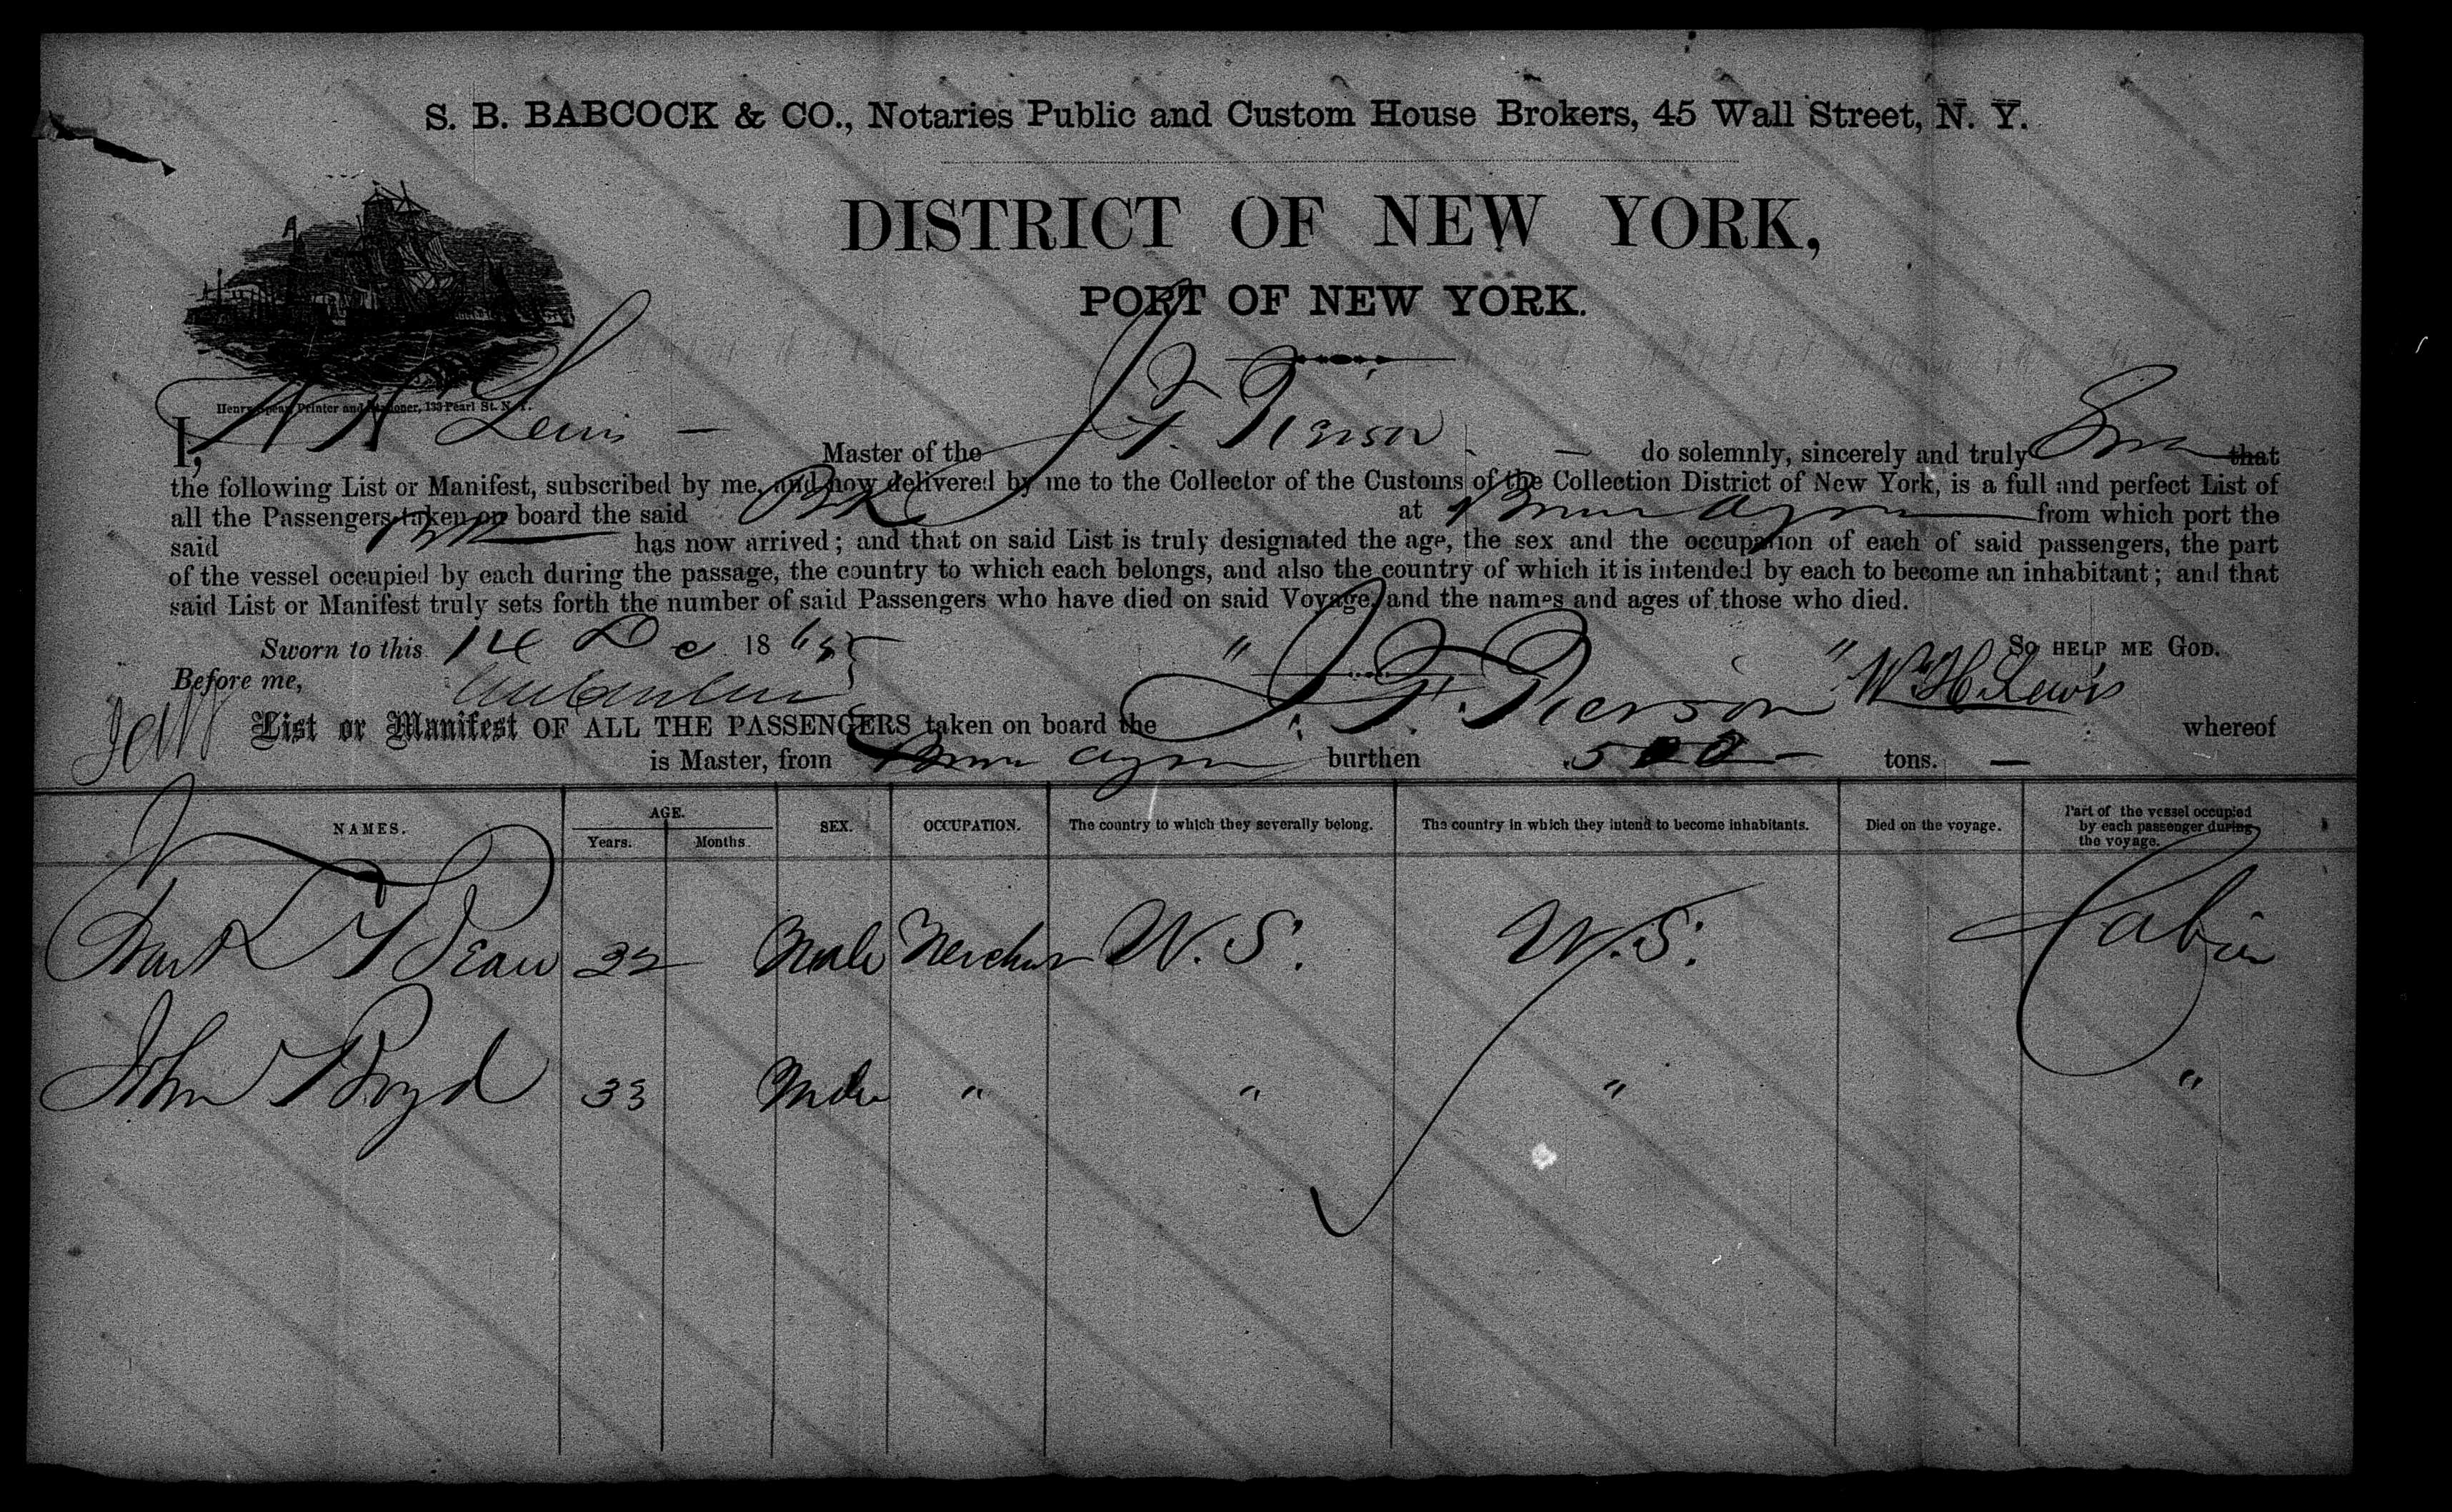 S. B. BABCOCK & CO., Notaries Public and Custom House Brokers, 45 Wall Street, N. Y.
DISTRICT OF NEW YORK,
PORT OF NEW YORK.
Henry Spear, Printer and Stationer, 133 Pearl St. N. Y.
I, W H Lewis — Master of the J. F. Pierson — do solemnly, sincerely and truly that
the following List or Manifest, subscribed by me, and now delivered by me to the Collector of the Customs of the Collection District of New York, is a full and perfect List of
all the Passengers taken on board the said Bk at Buenos Ayres from which port the
said Bk has now arrived; and that on said List is truly designated the age, the sex and the occupation of each of said passengers, the part
of the vessel occupied by each during the passage, the country to which each belongs, and also the country of which it is intended by each to become an inhabitant; and that
said List or Manifest truly sets forth the number of said Passengers who have died on said Voyage, and the names and ages of those who died.
Sworn to this 14 De 186 SO HELP ME GOD.
Before me, Wm H. Lewis
List or Manifest OF ALL THE PASSENGERS taken on board the " J. F. Pierson " whereof
is Master, from Buenos Ayres burthen 500 — tons. —
NAMES. AGE. Years. Months. SEX. OCCUPATION. The country to which they severally belong. The country in which they intend to become inhabitants. Died on the voyage. Part of the vessel occupied by each passenger during the voyage.
Dean Male U.S. U.S. Cabin
John Boyd 33 Male " " " "